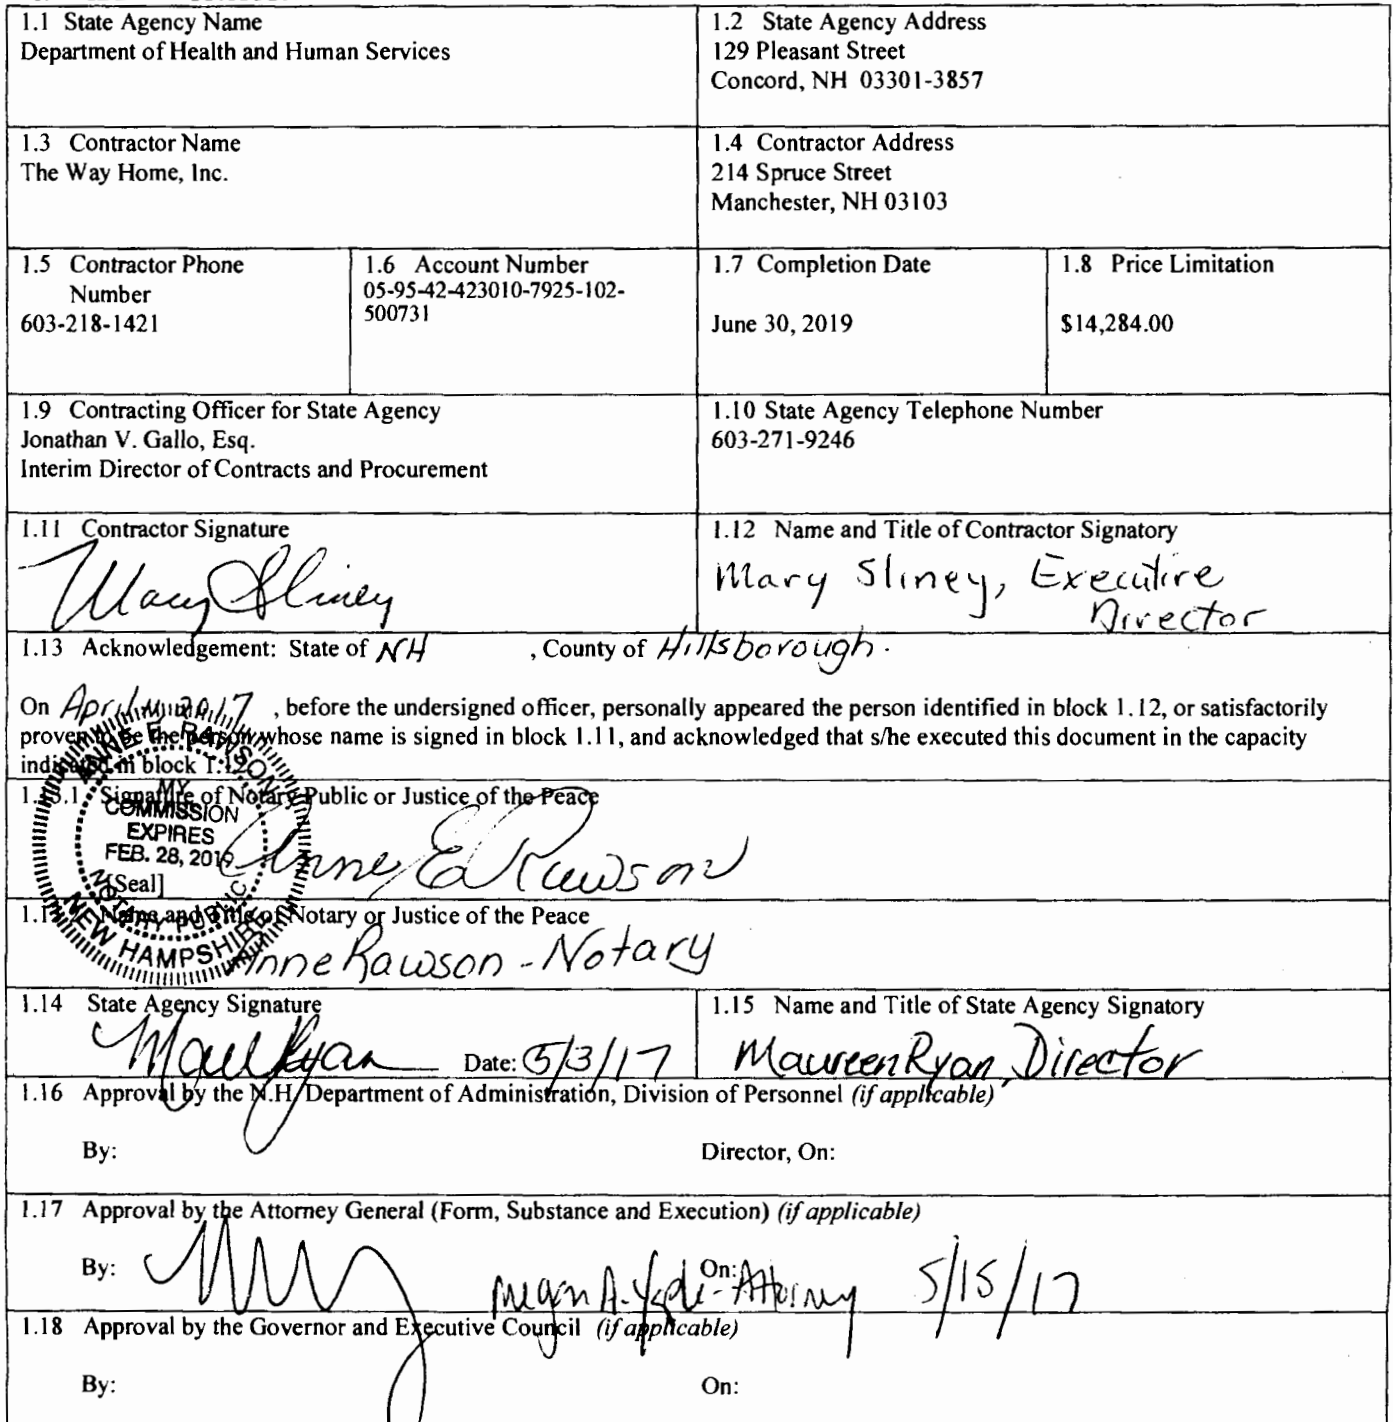 1.1 State Agency Name
Department of Health and Human Services
1.2 State Agency Address
129 Pleasant Street
Concord, NH 03301-3857
1.3 Contractor Name
The Way Home, Inc.
1.4 Contractor Address
214 Spruce Street
Manchester, NH 03103
1.5 Contractor Phone
Number
603-218-1421
1.6 Account Number
05-95-42-423010-7925-102-
500731
1.7 Completion Date
June 30, 2019
1.8 Price Limitation
$14,284.00
1.9 Contracting Officer for State Agency
Jonathan V. Gallo, Esq.
Interim Director of Contracts and Procurement
1.10 State Agency Telephone Number
603-271-9246
1.11 Contractor Signature
Mary Sliney
1.12 Name and Title of Contractor Signatory
Mary Sliney, Executive
Director
1.13 Acknowledgement: State of NH , County of Hillsborough.
On April 2017 , before the undersigned officer, personally appeared the person identified in block 1.12, or satisfactorily
proven to be the person whose name is signed in block 1.11, and acknowledged that s/he executed this document in the capacity
indicated in block 1.12.
1.13.1 Signature of Notary Public or Justice of the Peace
Anne E Rawson
[Seal]
ANNE E. RAWSON
MY
COMMISSION
EXPIRES
FEB. 28, 2019
NOTARY PUBLIC
NEW HAMPSHIRE
Name and Title of Notary or Justice of the Peace
Anne Rawson - Notary
1.14 State Agency Signature
Date: 5/3/17
1.15 Name and Title of State Agency Signatory
Maureen Ryan, Director
1.16 Approval by the N.H. Department of Administration, Division of Personnel (if applicable)
By: Director, On:
1.17 Approval by the Attorney General (Form, Substance and Execution) (if applicable)
By: Megan A. - Attorney On: 5/15/17
1.18 Approval by the Governor and Executive Council (if applicable)
By: On: